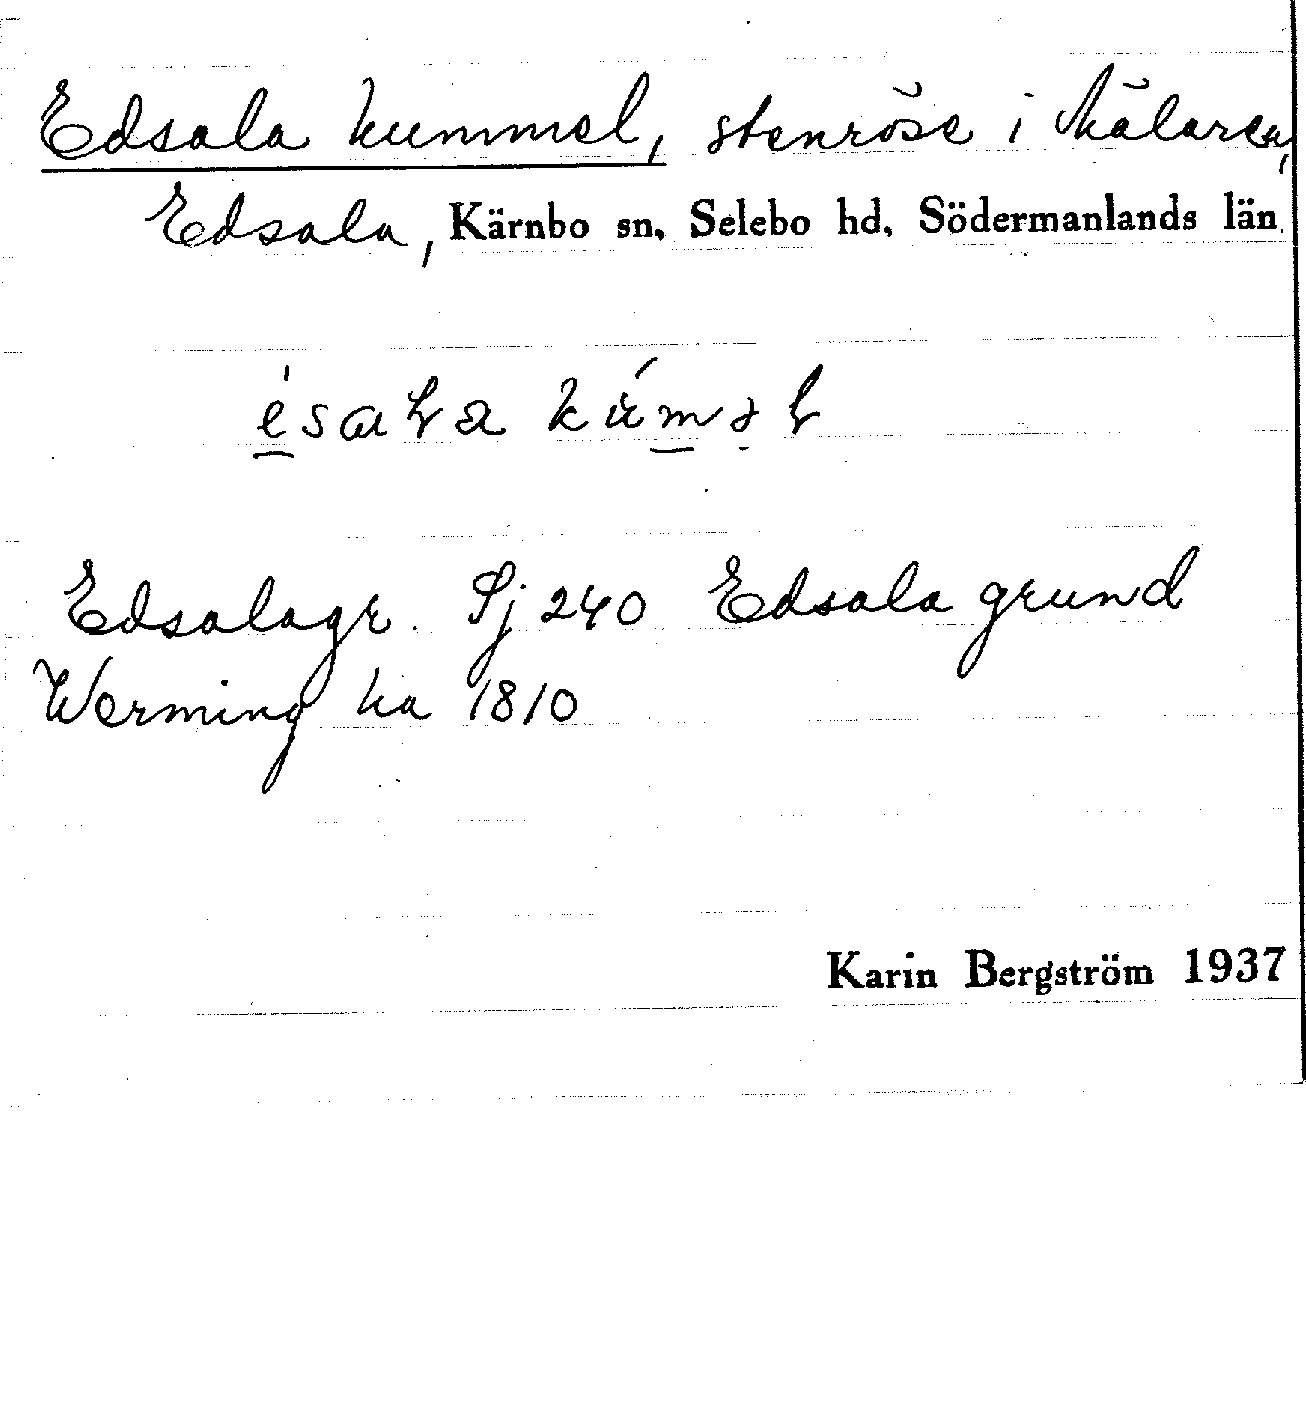 Edsala kummel, stenröse i Mälaren,
Edsala, Kärnbo sn, Selebo hd, Södermanlands län.
Edsalagr. Sj 240 Edsala grund
Werming ka 1810
Karin Bergström 1937